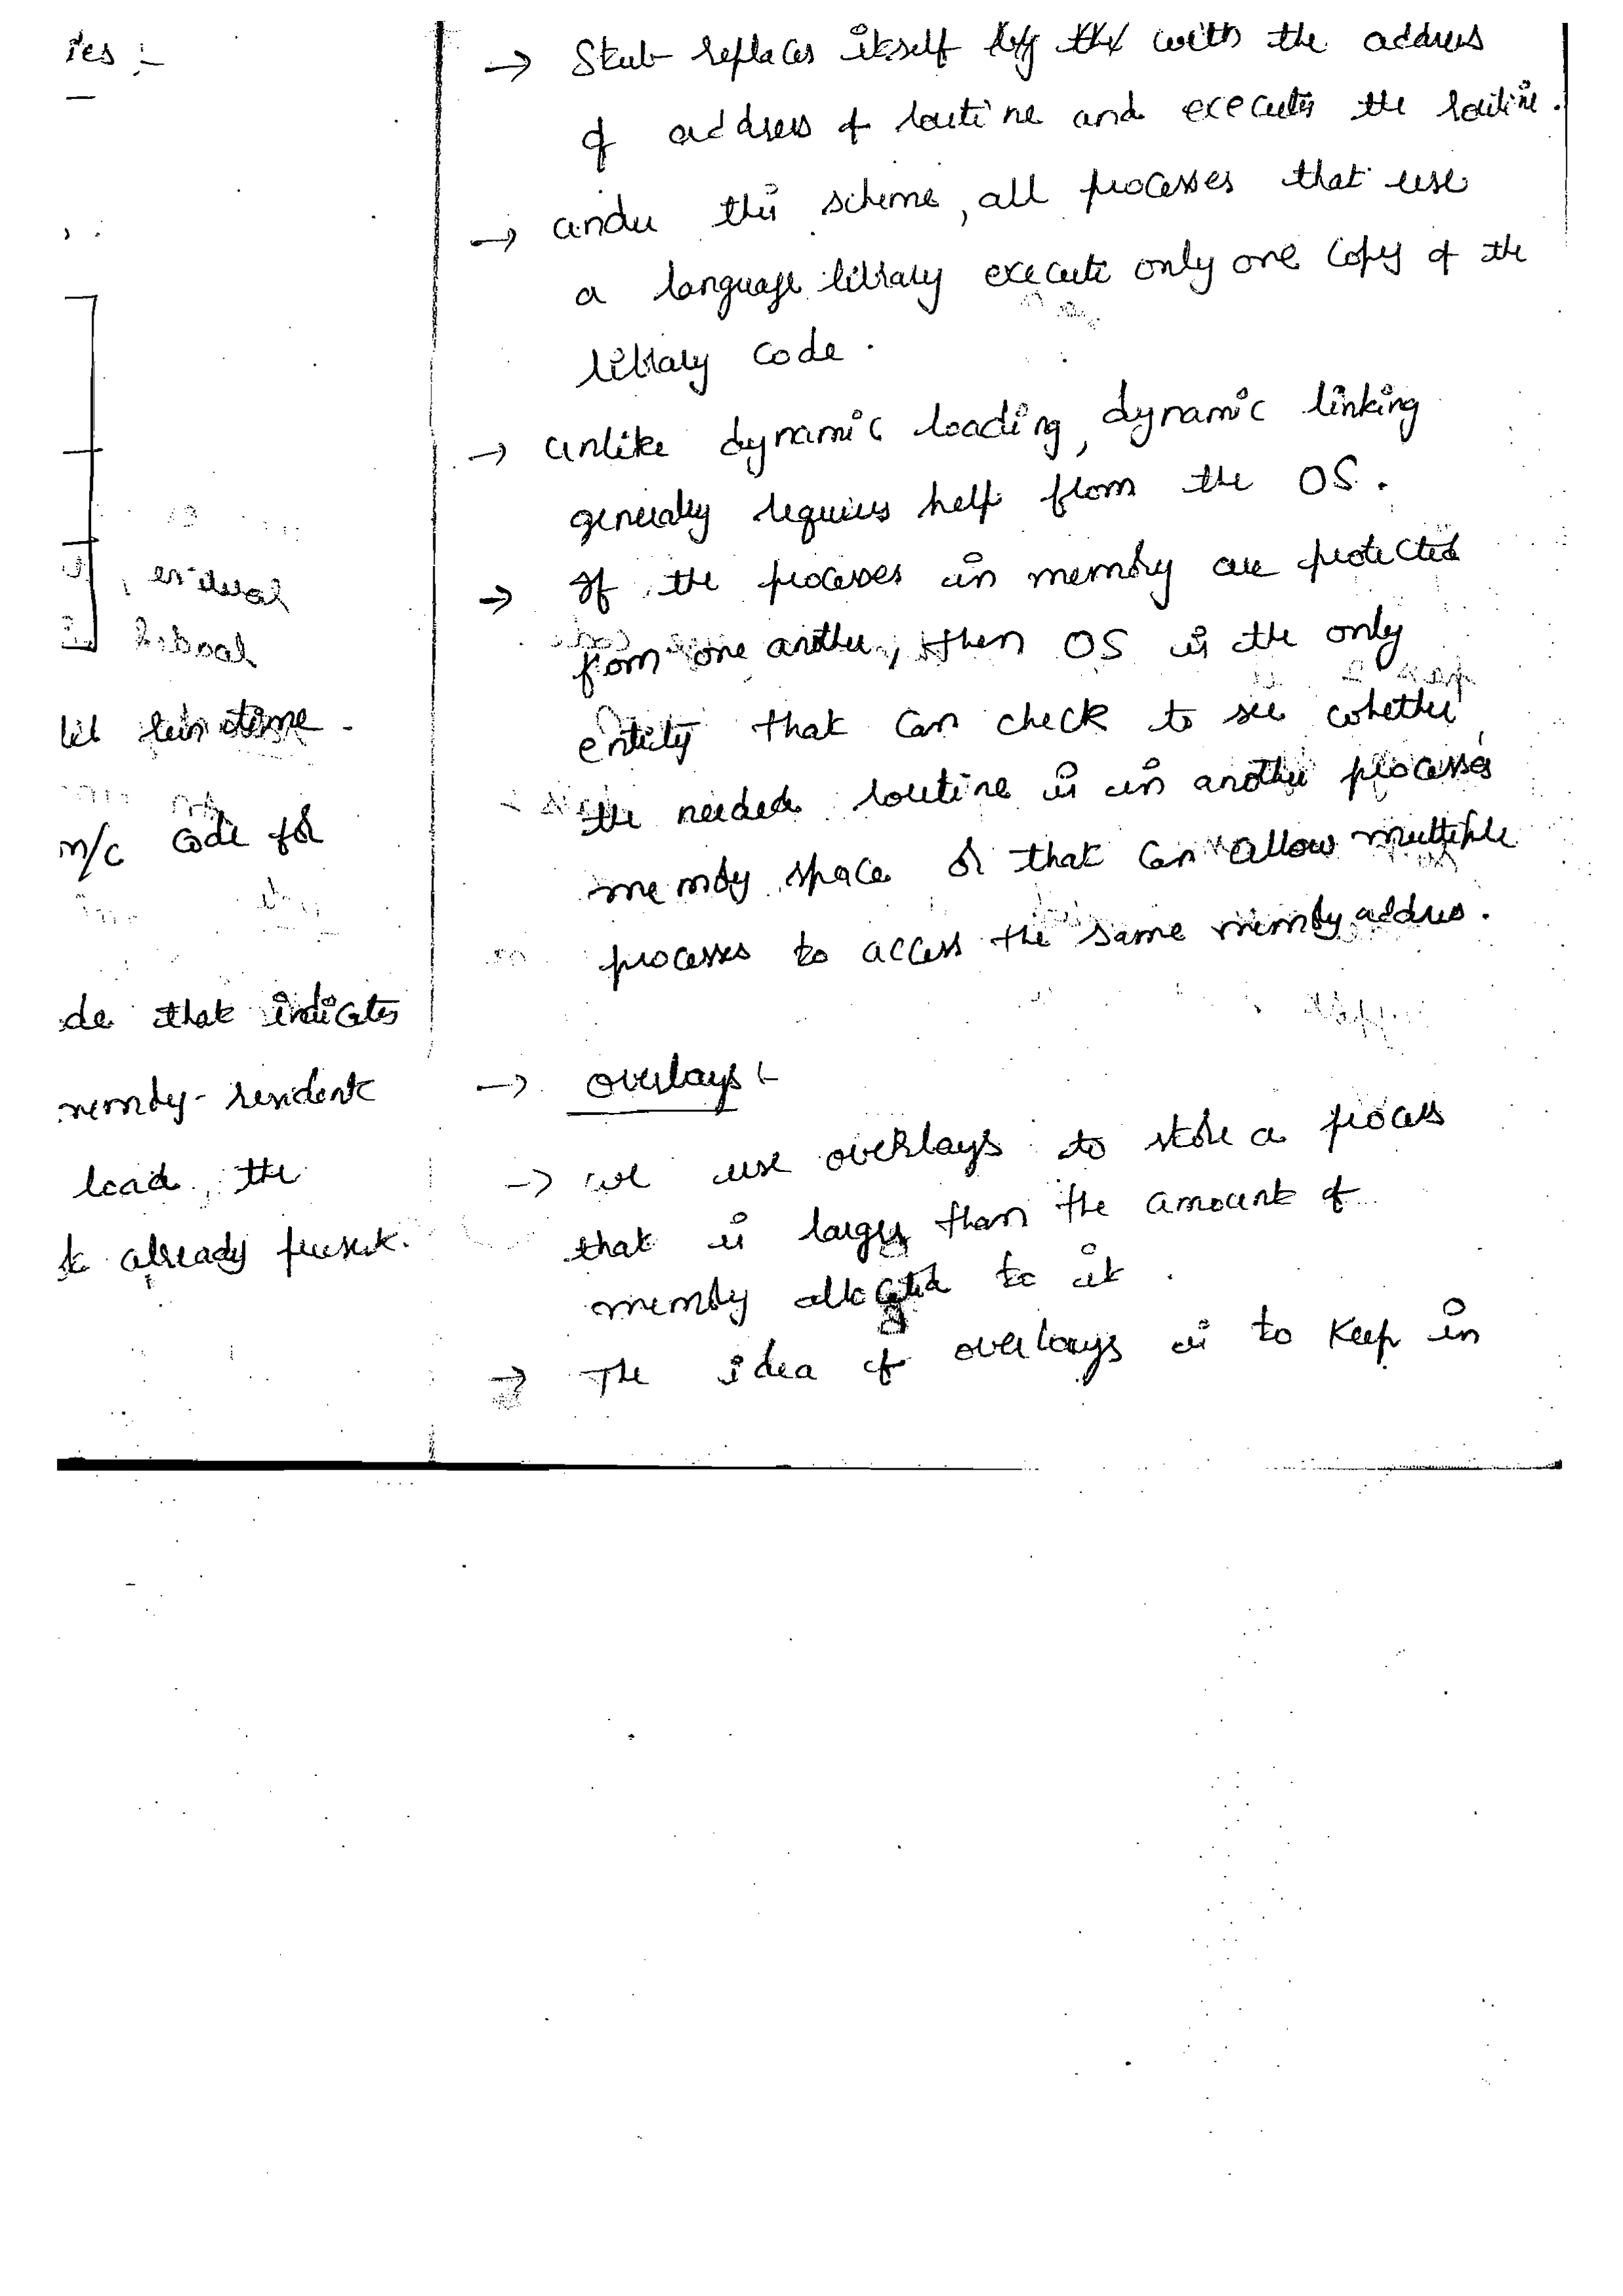 ies :-
lil run time.
m/c code for
de that indicates
memory-resident
load, the
already present.
→ Stub replaces itself by the with the address
of address of routine and executes the routine.
→ under this scheme, all processes that use
a language library execute only one copy of the
library code.
→ unlike dynamic loading, dynamic linking
generally requires help from the OS.
→ If the processes in memory are protected
from one another, then OS is the only
entity that can check to see whether
the needed routine is in another processes
memory space or that can allow multiple
processes to access the same memory address.
→ overlays :-
→ we use overlays to store a process
that is larger than the amount of
memory allocated to it.
→ The idea of overlays is to keep in